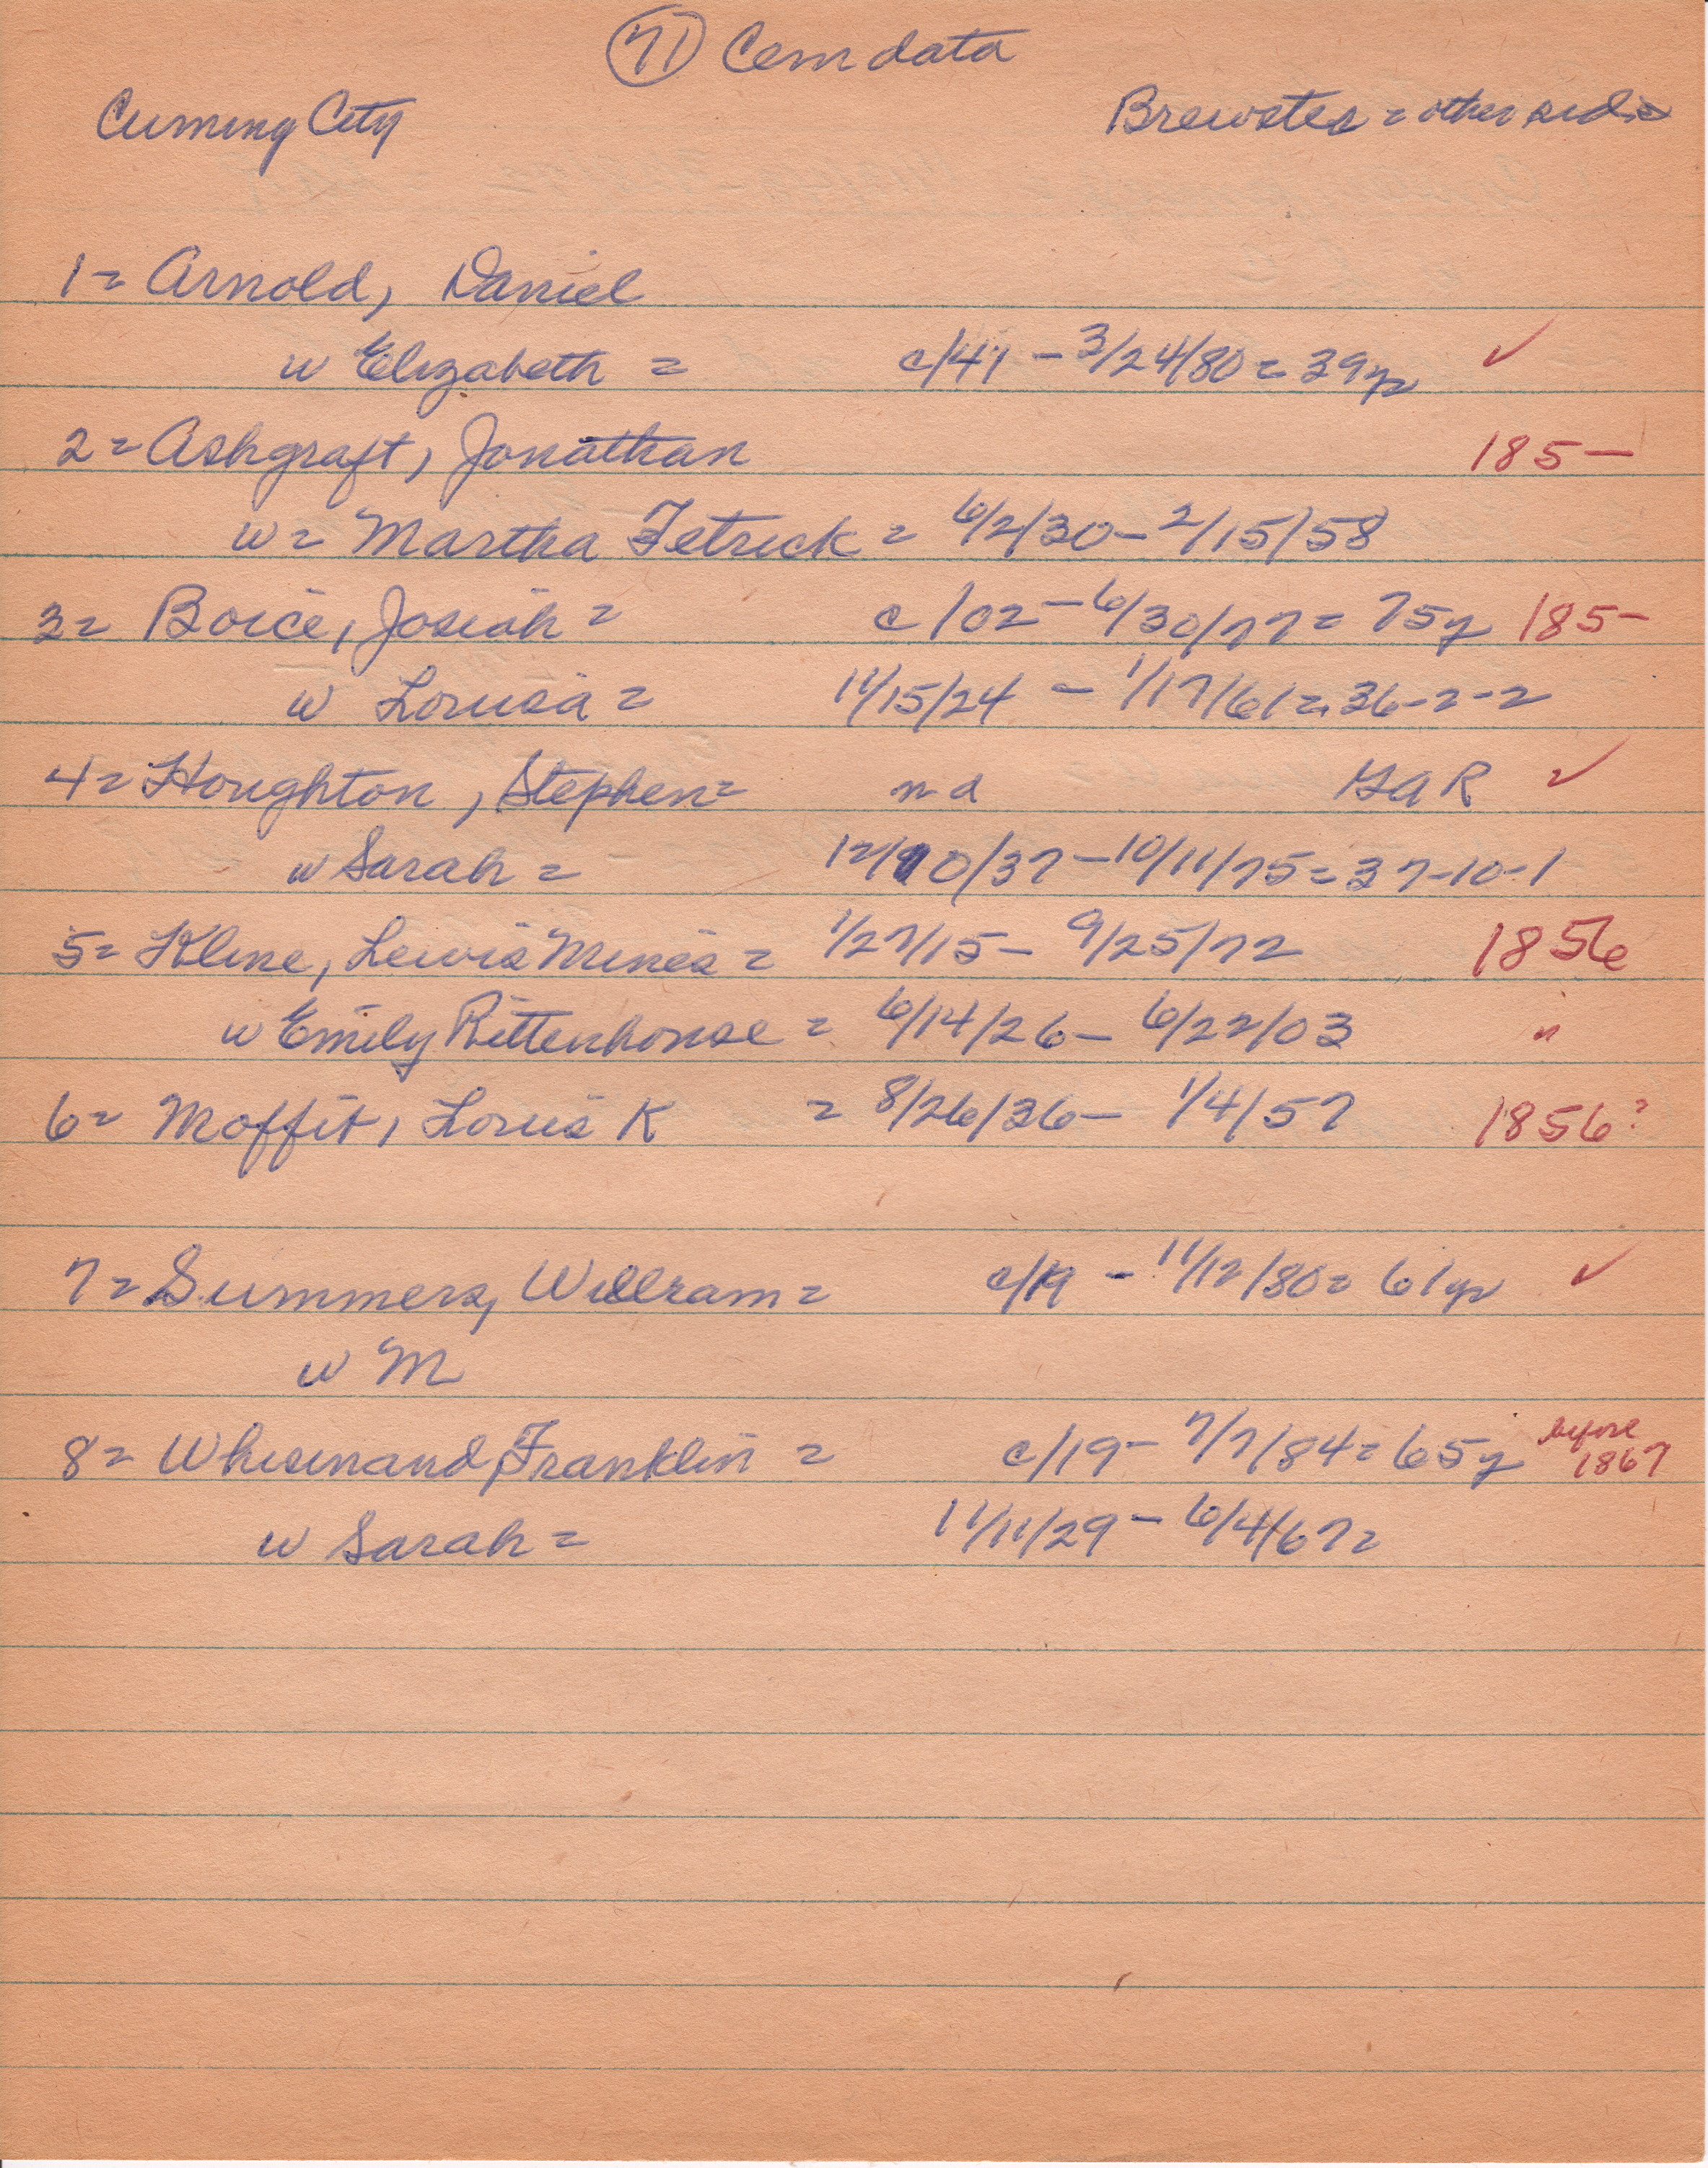 71 Cem data
Cuming City Brewster = other side
1 = Arnold, Daniel
w Elizabeth = c/41 - 3/24/80 = 39yr ✓
2 = Ashgraft, Jonathan 185-
w = Martha Fetrick = 6/2/30 - 2/15/58
3 = Boice, Josiah = c/02 - 6/30/77 = 75y 185-
w Louisa = 11/15/24 - 1/17/61 = 36-2-2
4 = Houghton, Stephen = nd GAR ✓
w Sarah = 12/10/37 - 10/11/75 = 37-10-1
5 = Kline, Lewis Mines = 1/27/15 - 9/25/72 1856
w Emily Rittenhouse = 6/14/26 - 6/22/03 "
6 = Moffit, Louis K = 8/26/36 - 1/4/57 1856?
7 = Summers, William = c/19 - 11/12/80 = 61yr ✓
w M
8 = Whisinand, Franklin = c/19 - 7/7/84 = 65y before 1867
w Sarah = 11/11/29 - 6/4/67 =